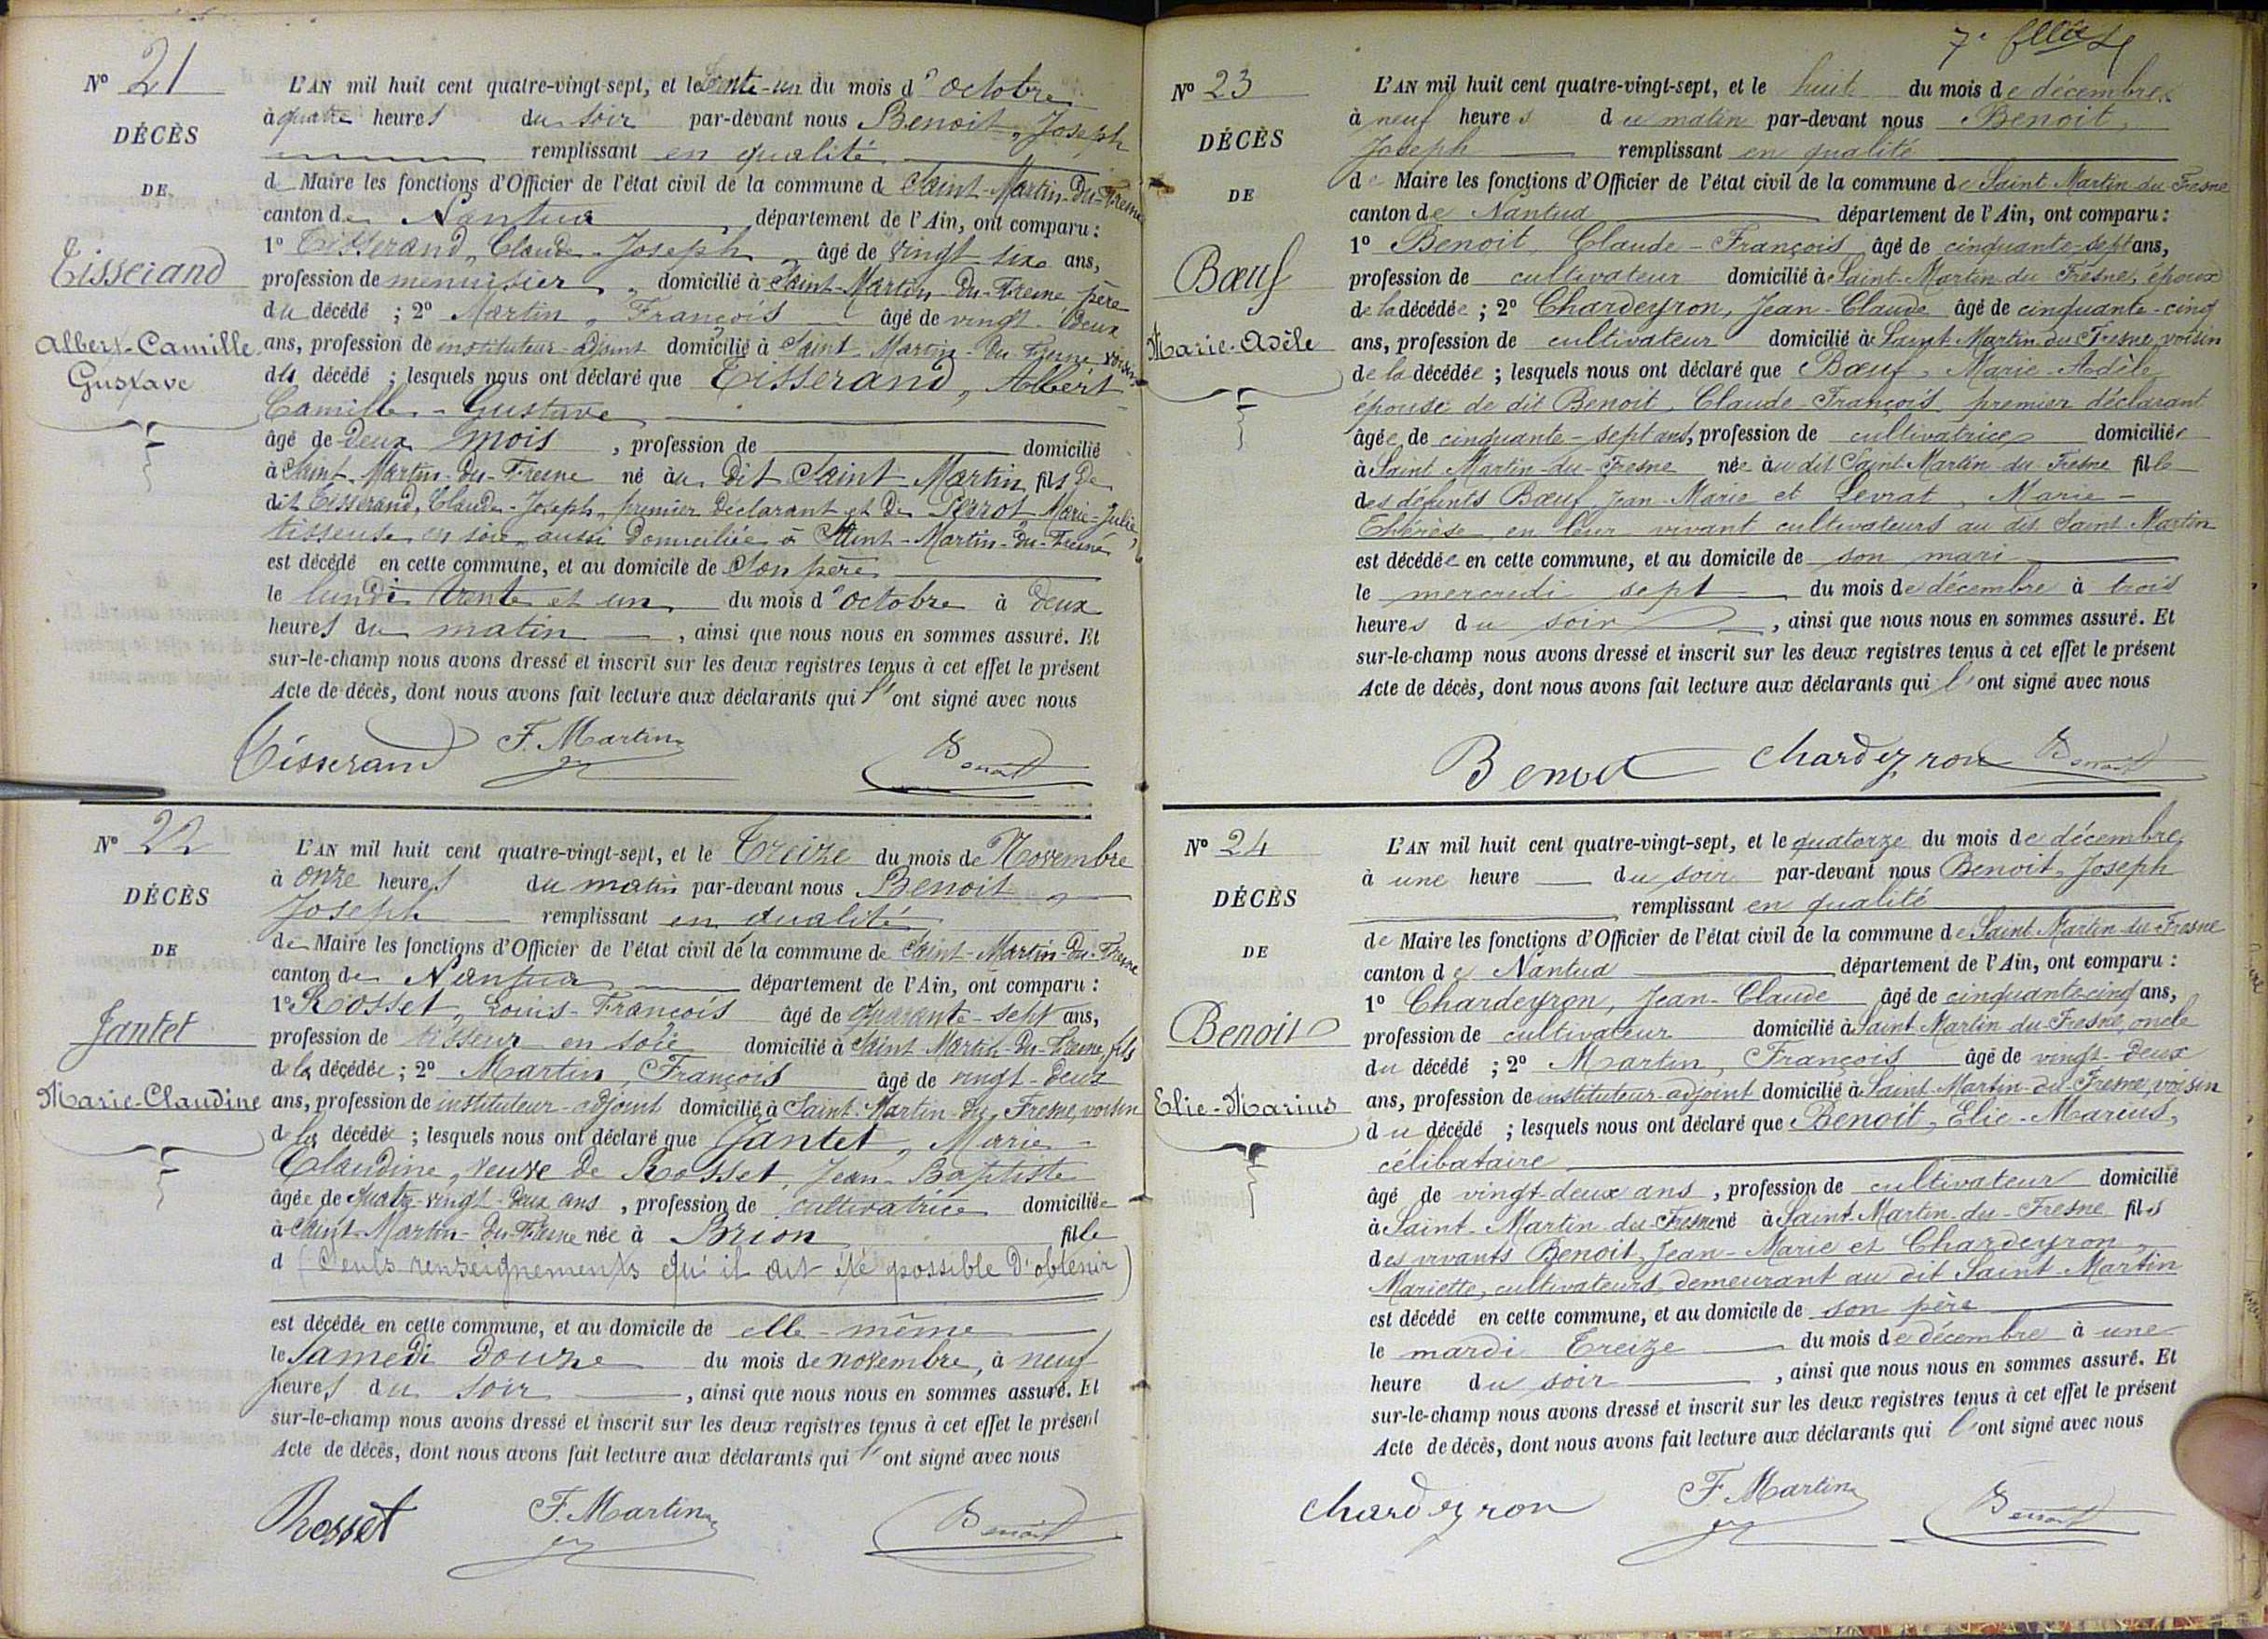 N° 21
DÉCÈS
DE
Tisserand
Albert-Camille
Gustave
L'AN mil huit cent quatre-vingt-sept, et le trente-un du mois d'octobre
à quatre heures du soir par-devant nous Benoit, Joseph
remplissant en qualité
de Maire les fonctions d'Officier de l'état civil de la commune de Saint-Martin-du-Fresne
canton de Nantua département de l'Ain, ont comparu :
1° Tisserand, Claude-Joseph, âgé de vingt six ans,
profession de menuisier, domicilié à Saint-Martin-du-Fresne, père
du décédé ; 2° Martin, François âgé de vingt-deux
ans, profession de instituteur-adjoint domicilié à Saint-Martin-du-Fresne voisin
du décédé ; lesquels nous ont déclaré que Tisserand, Albert
Camille-Gustave
âgé de deux mois, profession de domicilié
à Saint-Martin-du-Fresne né au dit Saint Martin fils de
dit Tisserand, Claude-Joseph, premier déclarant et de Perrot Marie-Julie,
tisseuse en soie, aussi domiciliée à Saint-Martin-du-Fresne
est décédé en cette commune, et au domicile de son père
le lundi trente et un du mois d'octobre à deux
heures du matin, ainsi que nous nous en sommes assuré. Et
sur-le-champ nous avons dressé et inscrit sur les deux registres tenus à cet effet le présent
Acte de décès, dont nous avons fait lecture aux déclarants qui l'ont signé avec nous
Tisserand F. Martin Benoit
N° 22
DÉCÈS
DE
Jantet
Marie-Claudine
L'AN mil huit cent quatre-vingt-sept, et le Treize du mois de Novembre
à onze heures du matin par-devant nous Benoit,
Joseph remplissant en qualité
de Maire les fonctions d'Officier de l'état civil de la commune de Saint-Martin-du-Fresne
canton de Nantua département de l'Ain, ont comparu :
1° Rosset, Louis-François âgé de quarante-sept ans,
profession de tisseur en soie domicilié à Saint-Martin-du-Fresne, fils
de la décédée ; 2° Martin, François âgé de vingt-deux
ans, profession de instituteur-adjoint domicilié à Saint-Martin-du-Fresne, voisin
de la décédée ; lesquels nous ont déclaré que Jantet, Marie-
Claudine, veuve de Rosset, Jean-Baptiste
âgée de quatre-vingt-deux ans, profession de cultivatrice domiciliée
à Saint-Martin-du-Fresne née à Brion fille
d (Seuls renseignements qu'il ait été possible d'obtenir)
est décédée en cette commune, et au domicile de elle-même
le Samedi douze du mois de novembre, à neuf
heures du soir, ainsi que nous nous en sommes assuré. Et
sur-le-champ nous avons dressé et inscrit sur les deux registres tenus à cet effet le présent
Acte de décès, dont nous avons fait lecture aux déclarants qui l'ont signé avec nous
Rosset F. Martin Benoit
7e
N° 23
DÉCÈS
DE
Bœuf
Marie-Adèle
L'AN mil huit cent quatre-vingt-sept, et le huit du mois de décembre
à neuf heures du matin par-devant nous Benoit,
Joseph remplissant en qualité
de Maire les fonctions d'Officier de l'état civil de la commune de Saint Martin du Fresne
canton de Nantua département de l'Ain, ont comparu :
1° Benoit, Claude-François âgé de cinquante-sept ans,
profession de cultivateur domicilié à Saint-Martin du Fresne, époux
de la décédée ; 2° Chardeyron, Jean-Claude âgé de cinquante-cinq
ans, profession de cultivateur domicilié à Saint Martin du Fresne, voisin
de la décédée ; lesquels nous ont déclaré que Bœuf, Marie-Adèle
épouse de dit Benoit, Claude-François premier déclarant
âgée de cinquante-sept ans, profession de cultivatrice domiciliée
à Saint Martin-du-Fresne née au dit Saint-Martin du Fresne fille
des défunts Bœuf Jean-Marie et Levrat, Marie-
Thérèse, en leur vivant cultivateurs au dit Saint-Martin
est décédée en cette commune, et au domicile de son mari
le mercredi sept du mois de décembre à trois
heures du soir, ainsi que nous nous en sommes assuré. Et
sur-le-champ nous avons dressé et inscrit sur les deux registres tenus à cet effet le présent
Acte de décès, dont nous avons fait lecture aux déclarants qui l'ont signé avec nous
Benoit Chardeyron Benoit
N° 24
DÉCÈS
DE
Benoit
Elie-Marius
L'AN mil huit cent quatre-vingt-sept, et le quatorze du mois de décembre
à une heure du soir par-devant nous Benoit, Joseph
remplissant en qualité
de Maire les fonctions d'Officier de l'état civil de la commune de Saint Martin du Fresne
canton de Nantua département de l'Ain, ont comparu :
1° Chardeyron, Jean-Claude âgé de cinquante-cinq ans,
profession de cultivateur domicilié à Saint Martin du Fresne, oncle
du décédé ; 2° Martin, François âgé de vingt-deux
ans, profession de instituteur-adjoint domicilié à Saint-Martin-du-Fresne, voisin
du décédé ; lesquels nous ont déclaré que Benoit, Elie-Marius,
célibataire
âgé de vingt-deux ans, profession de cultivateur domicilié
à Saint-Martin-du-Fresne né à Saint-Martin-du-Fresne fils
des vivants Benoit, Jean-Marie et Chardeyron,
Mariette, cultivateurs, demeurant au dit Saint-Martin
est décédé en cette commune, et au domicile de son père
le mardi Treize du mois de décembre à une
heure du soir, ainsi que nous nous en sommes assuré. Et
sur-le-champ nous avons dressé et inscrit sur les deux registres tenus à cet effet le présent
Acte de décès, dont nous avons fait lecture aux déclarants qui l'ont signé avec nous
Chardeyron F. Martin Benoit